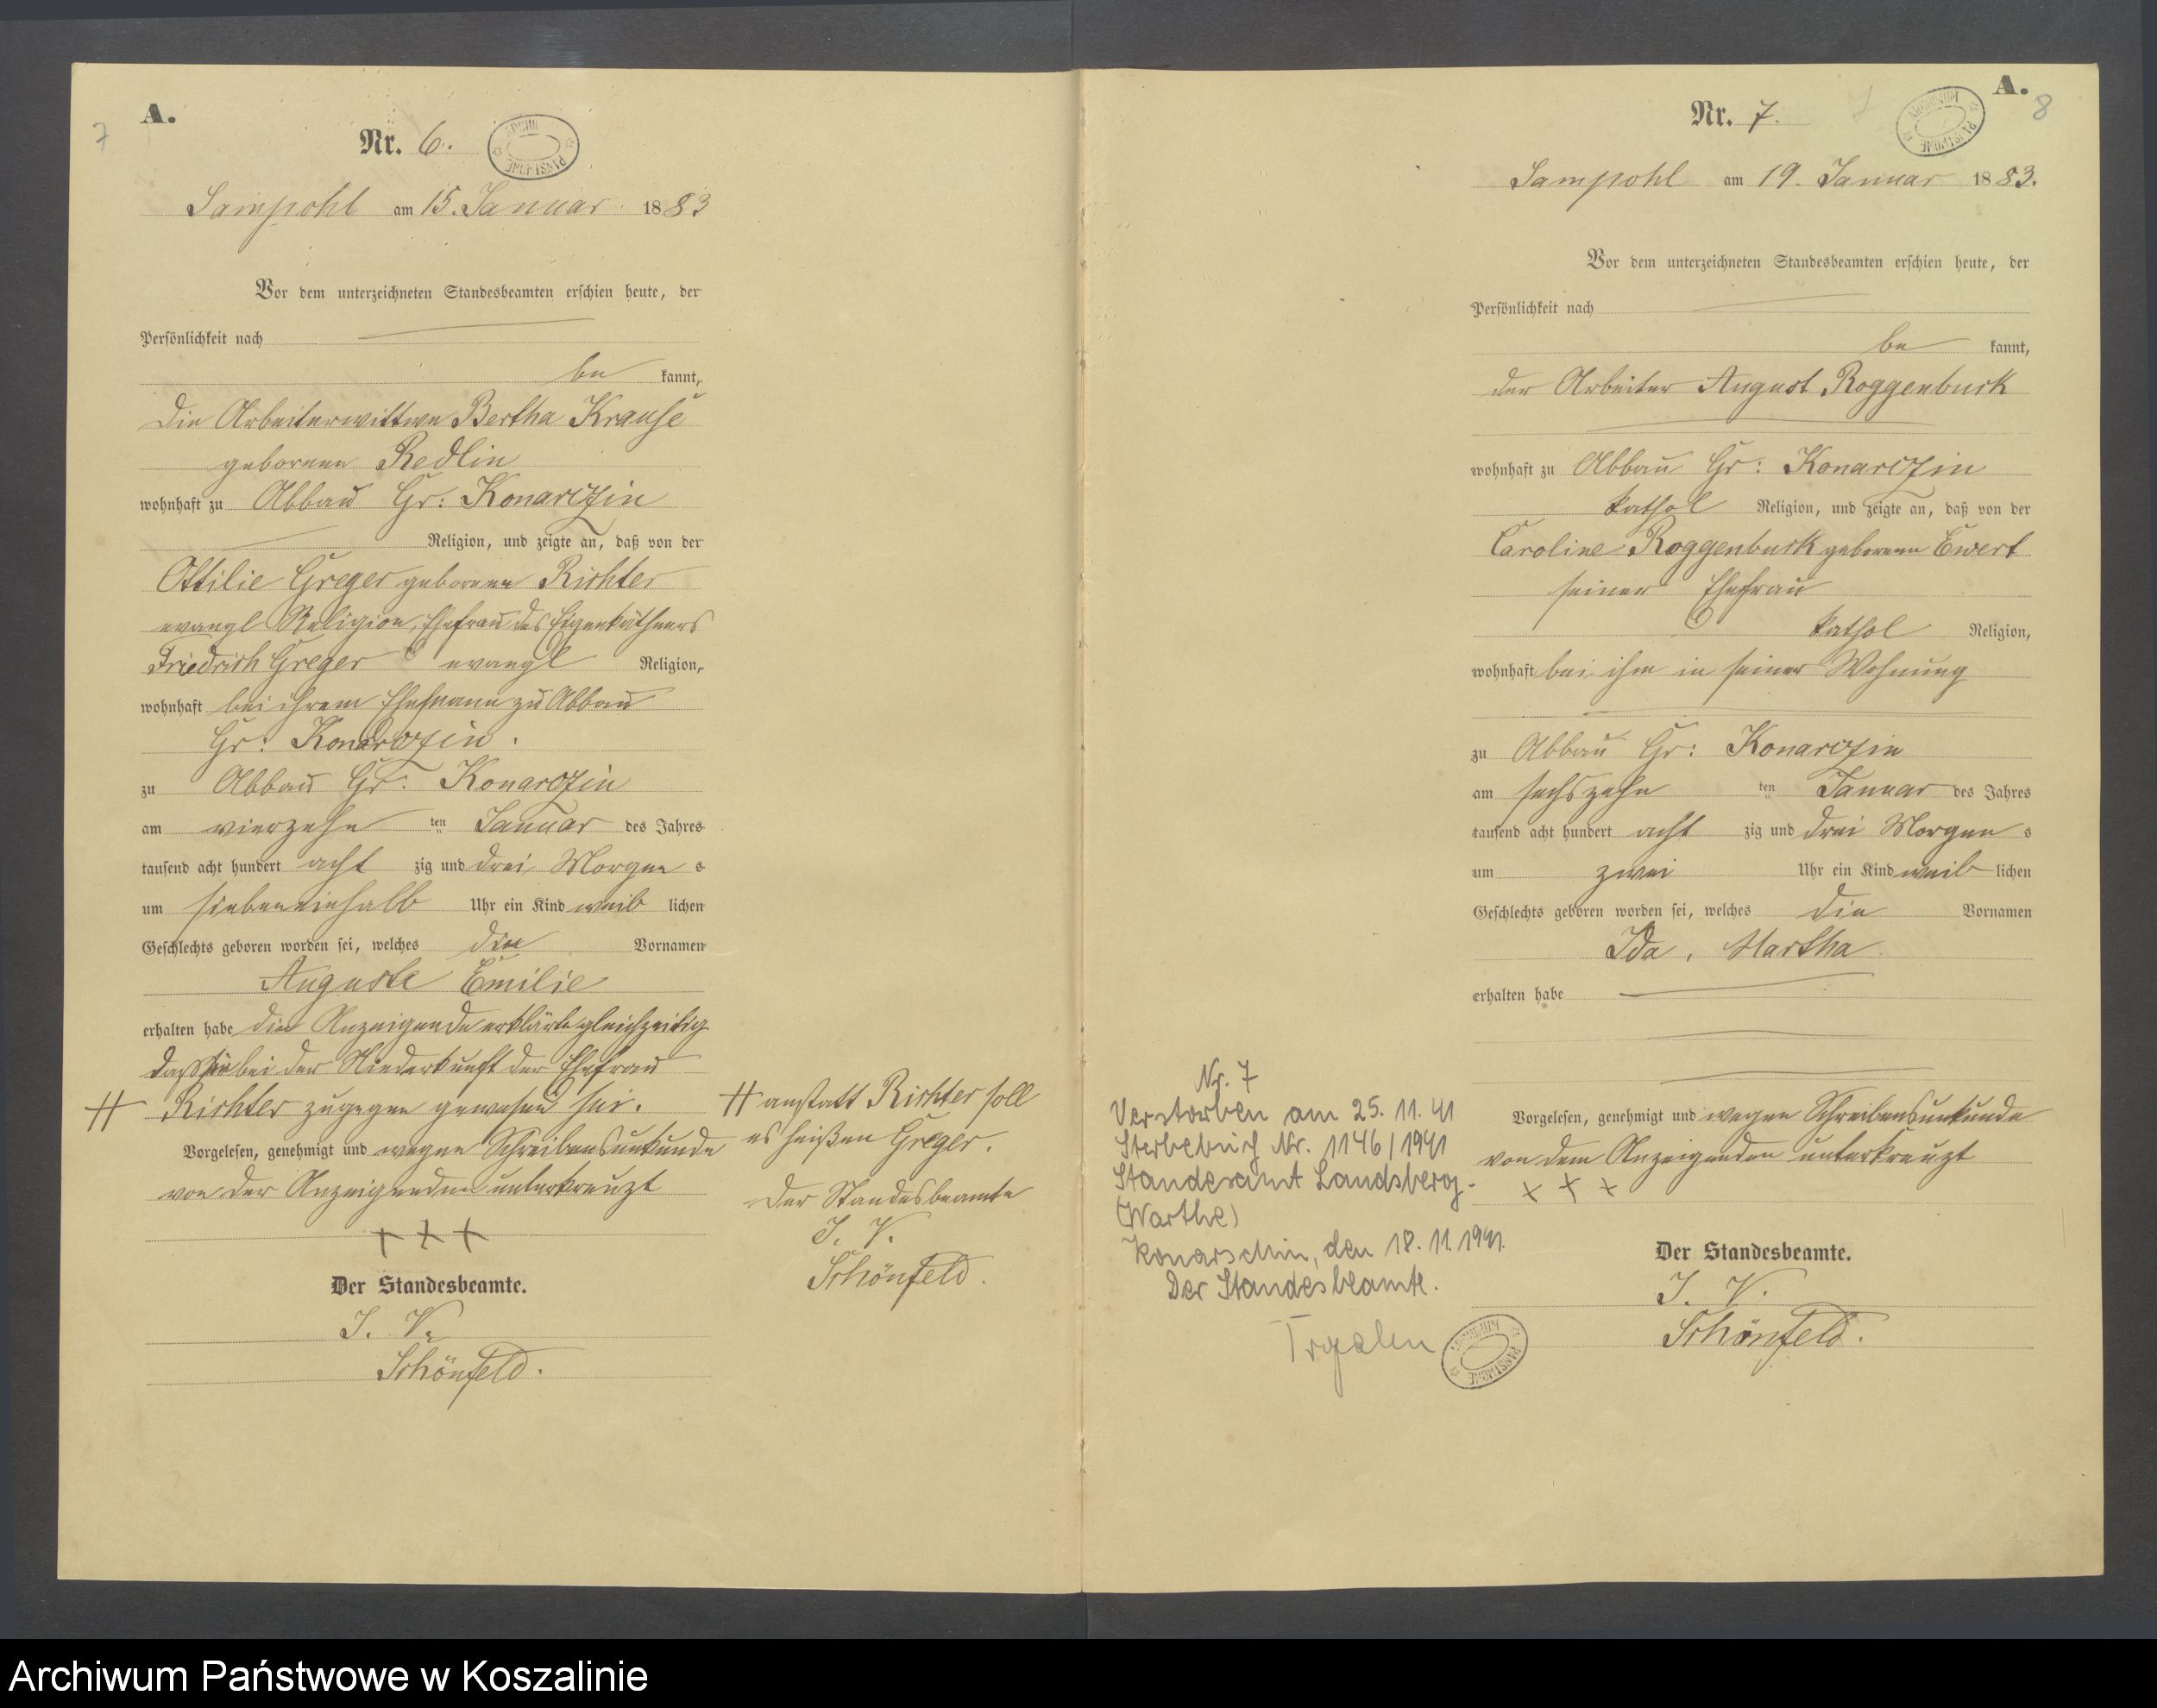 7
A.
Nr. 6.
Sampohl am 15. Januar 1883
Vor dem unterzeichneten Standesbeamten erschien heute, der
Persönlichkeit nach
be kannt,
die Arbeiterwittwe Bertha Krause
geborene Redlin
wohnhaft zu Abbau Gr: Konarczin
Religion, und zeigte an, daß von der
Ottilie Greger geborene Richter
evangl Religion, Ehefrau des Eigenkäthners
Friedrich Greger evangl Religion,
wohnhaft bei ihrem Ehemann zu Abbau
Gr: Konarczin.
zu Abbau Gr: Konarczin
am vierzehn ten Januar des Jahres
tausend acht hundert acht zig und drei Morgens
um siebeneinhalb Uhr ein Kind weiblichen
Geschlechts geboren worden sei, welches die Vornamen
Auguste Emilie
erhalten habe die Anzeigende erklärte gleichzeitig
daß sie bei der Niederkunft der Ehefrau
# Richter zugegen gewesen sei.
Vorgelesen, genehmigt und wegen Schreibensunkunde
von der Anzeigenden unterkreuzt
+ + +
Der Standesbeamte.
I. V.
Schönfeld.
# anstatt Richter soll
es heißen Greger.
Der Standesbeamte
I. V.
Schönfeld.
A.
8
Nr. 7.
Sampohl am 19. Januar 1883.
Vor dem unterzeichneten Standesbeamten erschien heute, der
Persönlichkeit nach
be kannt,
der Arbeiter August Roggenbuck
wohnhaft zu Abbau Gr: Konarczin
kathol Religion, und zeigte an, daß von der
Caroline Roggenbuck geborene Ewert
seiner Ehefrau
kathol Religion,
wohnhaft bei ihm in seiner Wohnung
zu Abbau Gr: Konarczin
am sechszehn ten Januar des Jahres
tausend acht hundert acht zig und drei Morgens
um zwei Uhr ein Kind weiblichen
Geschlechts geboren worden sei, welches die Vornamen
Ida, Martha
erhalten habe
Vorgelesen, genehmigt und wegen Schreibensunkunde
von dem Anzeigenden unterkreuzt
+ + +
Der Standesbeamte.
I. V.
Schönfeld.
Nr. 7
Verstorben am 25. 11. 41
Sterbebuch Nr. 1146/1941
Standesamt Landsberg-
(Warthe)
Konarschin, den 18. 11. 1941.
Der Standesbeamte.
ARCHIWUM PAŃSTWOWE
Archiwum Państwowe w Koszalinie